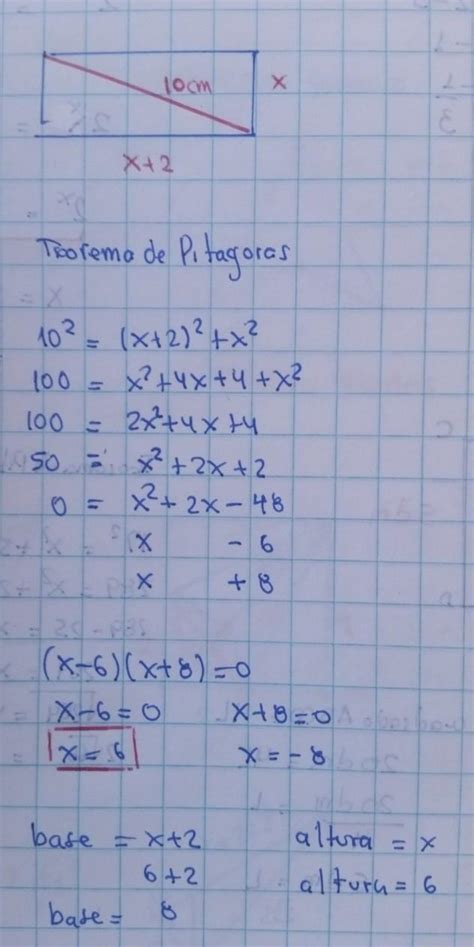 10cm
x
x+2
Teorema de Pitagoras
10² = (x+2)² + x²
100 = x² + 4x + 4 + x²
100 = 2x² + 4x + 4
50 = x² + 2x + 2
0 = x² + 2x - 48
x - 6
x + 8
(x-6)(x+8)=0
x-6=0 x+8=0
x=6 x=-8
base = x+2 altura = x
6+2 altura = 6
base = 8